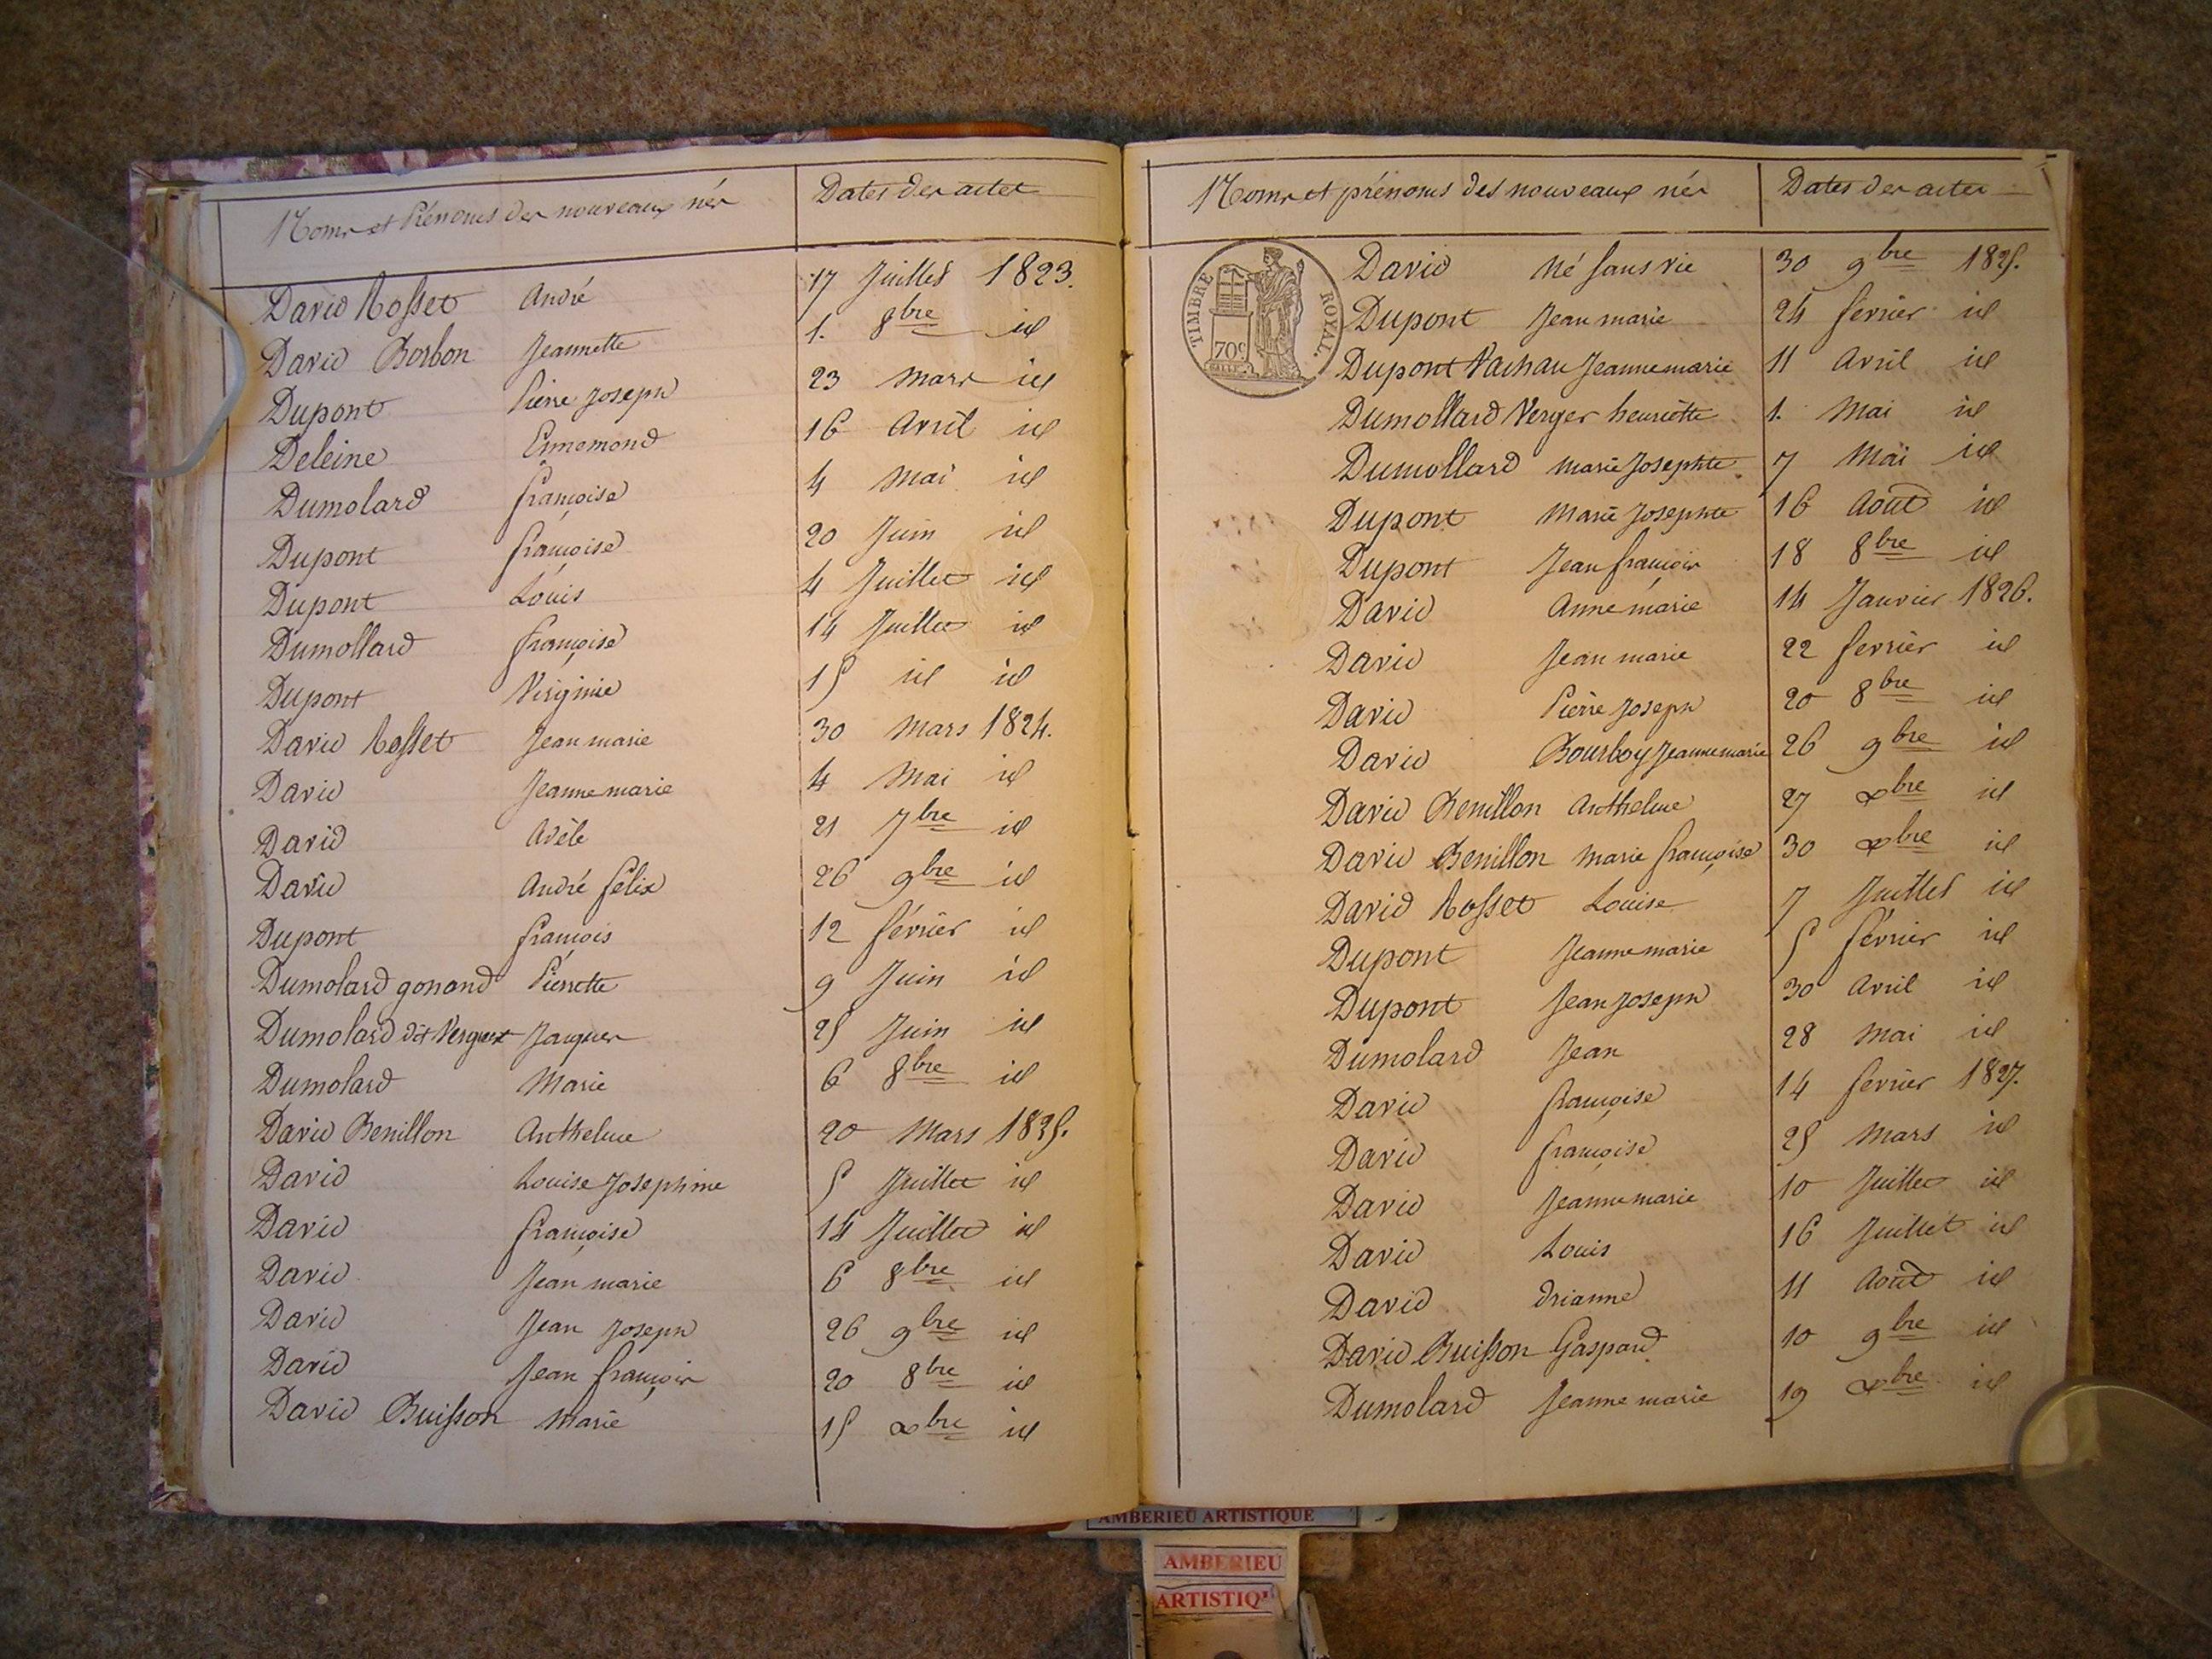 Noms et Prénoms des nouveaux nés Dates des actes
David Rosset André 17 Juillet 1823.
David Borbon Jeannette 1. 8bre id
Dupont Pierre Joseph 23 Mars id
Deleine Ennemond 16 Avril id
Dumolard françoise 4 Mai id
Dupont françoise 20 Juin id
Dupont Louis 4 Juillet id
Dumollard françoise 14 Juillet id
Dupont Virginie 15 id id
David Rosset Jean marie 30 Mars 1824.
David Jeanne marie 4 Mai id
David Adèle 21 7bre id
David André félix 26 9bre id
Dupont françois 12 février id
Dumolard gonand Pierrette 9 Juin id
Dumolard dit Jacques 25 Juin id
Dumolard Marie 6 8bre id
David Benillon Anthelme 20 Mars 1825.
David Louise Josephine 5 Juillet id
David françoise 14 Juillet id
David Jean marie 6 8bre id
David Jean Joseph 26 9bre id
David Jean françois 20 8bre id
David Buisson Marie 15 xbre id
Noms et prénoms des nouveaux nés Dates des actes
TIMBRE ROYAL.
70c
David Né sans vie 30 9bre 1825.
Dupont Jean marie 24 février id
Dupont Vachau Jeanne marie 11 Avril id
Dumollard Verger henriette 1. Mai id
Dumollard Marie Josephte 7 Mai id
Dupont Marie Josephte 16 Août id
Dupont Jean françois 18 8bre id
David Anne marie 14 Janvier 1826.
David Jean marie 22 fevrier id
David Pierre Joseph 20 8bre id
David Bourboy Jeanne marie 26 9bre id
David Benillon Anthelme 27 xbre id
David Benillon Marie françoise 30 xbre id
David Rosset Louise 7 Juillet id
Dupont Jeanne marie 5 février id
Dupont Jean Joseph 30 Avril id
Dumolard Jean 28 Mai id
David françoise 14 fevrier 1827.
David françoise 25 Mars id
David Jeanne marie 10 Juillet id
David Louis 16 Juillet id
David drianne 11 Août id
David Buisson Gaspard 10 9bre id
Dumolard Jeanne marie 19 xbre id
AMBERIEU ARTISTIQUE
AMBERIEU
ARTISTIQ